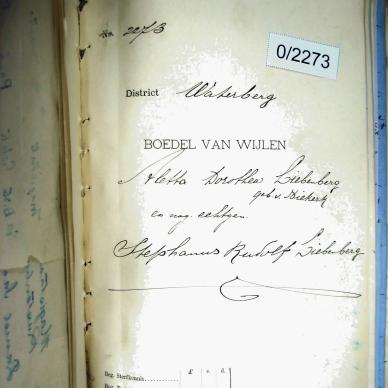 No. 2273
0/2273
District Waterberg
BOEDEL VAN WIJLEN
Aletta Dorothea Liebenberg
geb. v. Niekerk
en nag. echtgen.
Stephanus Rudolf Liebenberg
£ s. d.
Beg. Sterfkennis